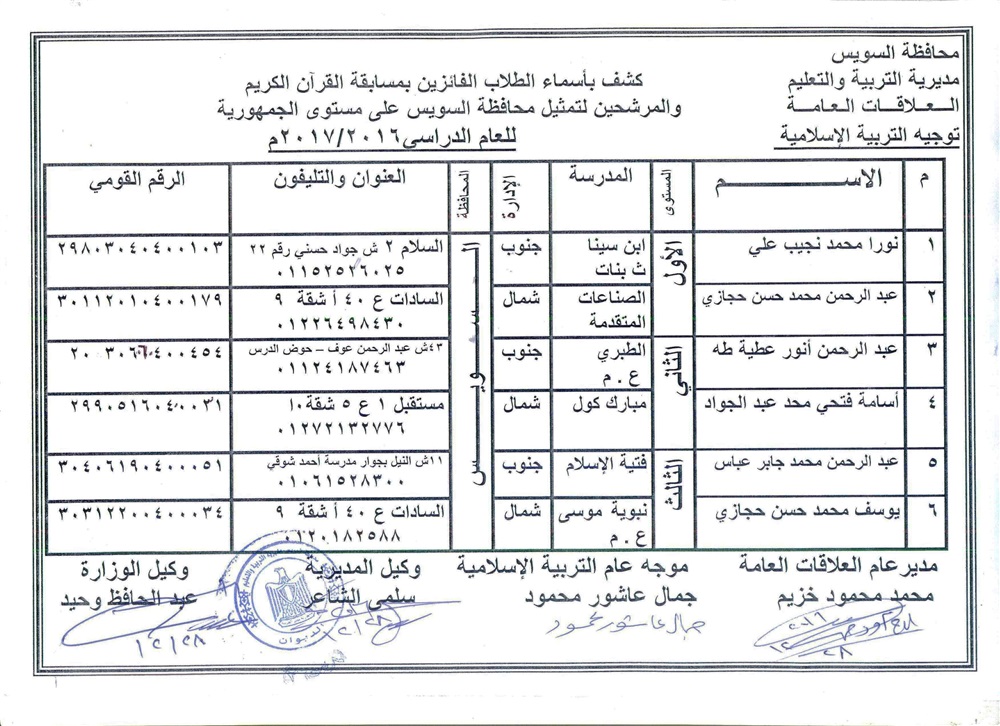 محافظة السويس
مديرية التربية والتعليم
العلاقات العامة
توجيه التربية الإسلامية
كشف بأسماء الطلاب الفائزين بمسابقة القرآن الكريم
والمرشحين لتمثيل محافظة السويس على مستوى الجمهورية
للعام الدراسى٢٠١٧/٢٠١٦م
م الاســـــم المستوى المدرسة الإدارة المحافظة العنوان والتليفون الرقم القومي
١ نورا محمد نجيب علي الأول ابن سينا ث بنات جنوب السـويـس السلام ٢ ش جواد حسني رقم ٢٢ ٢٩٨٠٣٠٤٠٤٠٠١٠٣
٠١١٥٢٥٢٦٠٢٥
٢ عبد الرحمن محمد حسن حجازي الصناعات المتقدمة شمال السادات ع ٤٠ أ شقة ٩ ٣٠١١٢٠١٠٤٠٠١٧٩
٠١٢٢٦٤٩٨٤٣٠
٣ عبد الرحمن أنور عطية طه الثاني الطبري ع . م جنوب ٤٣ش عبد الرحمن عوف – حوض الدرس
٠١١٢٤١٨٧٤٦٣
٤ أسامة فتحي محد عبد الجواد مبارك كول شمال مستقبل ١ ع ٥ شقة ١٠ ٢٩٩٠٥١٦٠٤٠٠٣١
٠١٢٧٢١٣٢٧٧٦
٥ عبد الرحمن محمد جابر عباس الثالث فتية الإسلام جنوب ١١ش النيل بجوار مدرسة أحمد شوقي ٣٠٤٠٦١٩٠٤٠٠٠٥١
٠١٠٦١٥٢٨٣٠٠
٦ يوسف محمد حسن حجازي نبوية موسى ع . م شمال السادات ع ٤٠ أ شقة ٩ ٣٠٣١٢٢٠٠٤٠٠٠٣٤
٠١٢٠١٨٢٥٨٨
مديرعام العلاقات العامة موجه عام التربية الإسلامية وكيل المديرية وكيل الوزارة
محمد محمود خزيم جمال عاشور محمود سلمى الشاعر عبد الحافظ وحيد
جمال عاشور محمود
١٢/٢٨
١٢/٢٨
الديوان